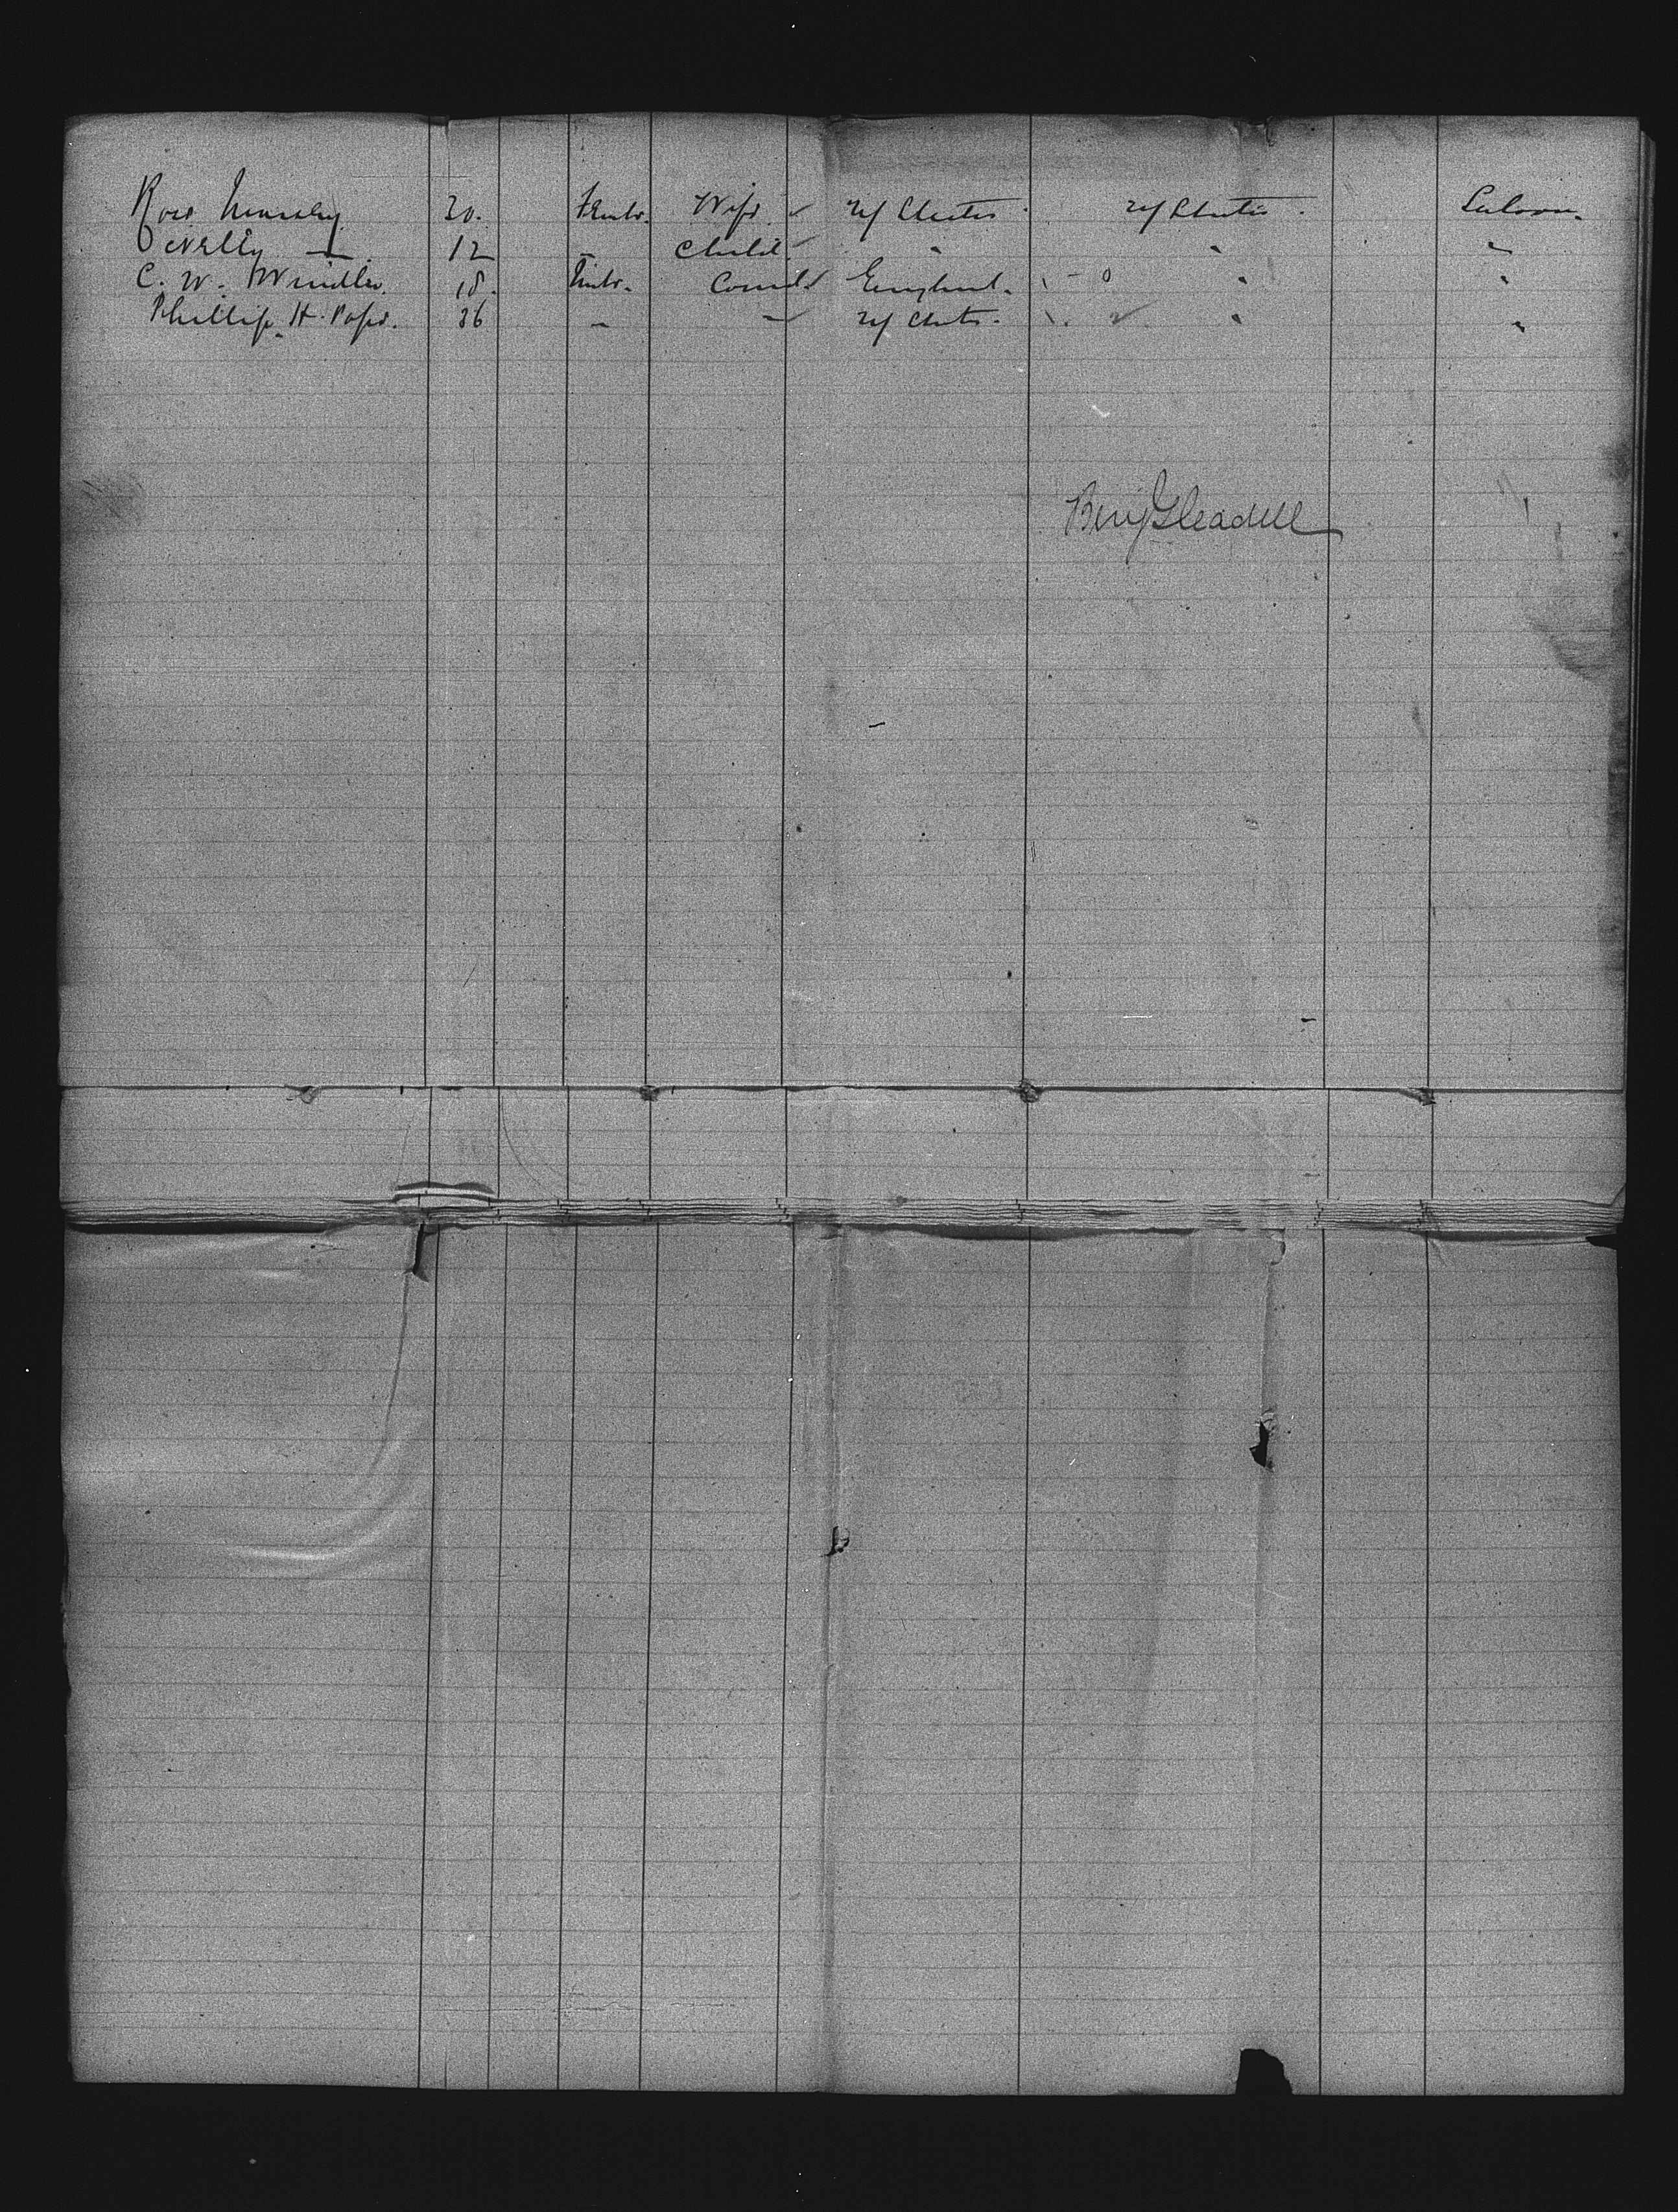 Rose 20. Female. Wife. U States. U States. Saloon.
Nelly — 12 — Child. " " "
C. W. 18. Male. England. " "
Phillip H. Pope. 36 — — U States. " "
Benj Gleadell